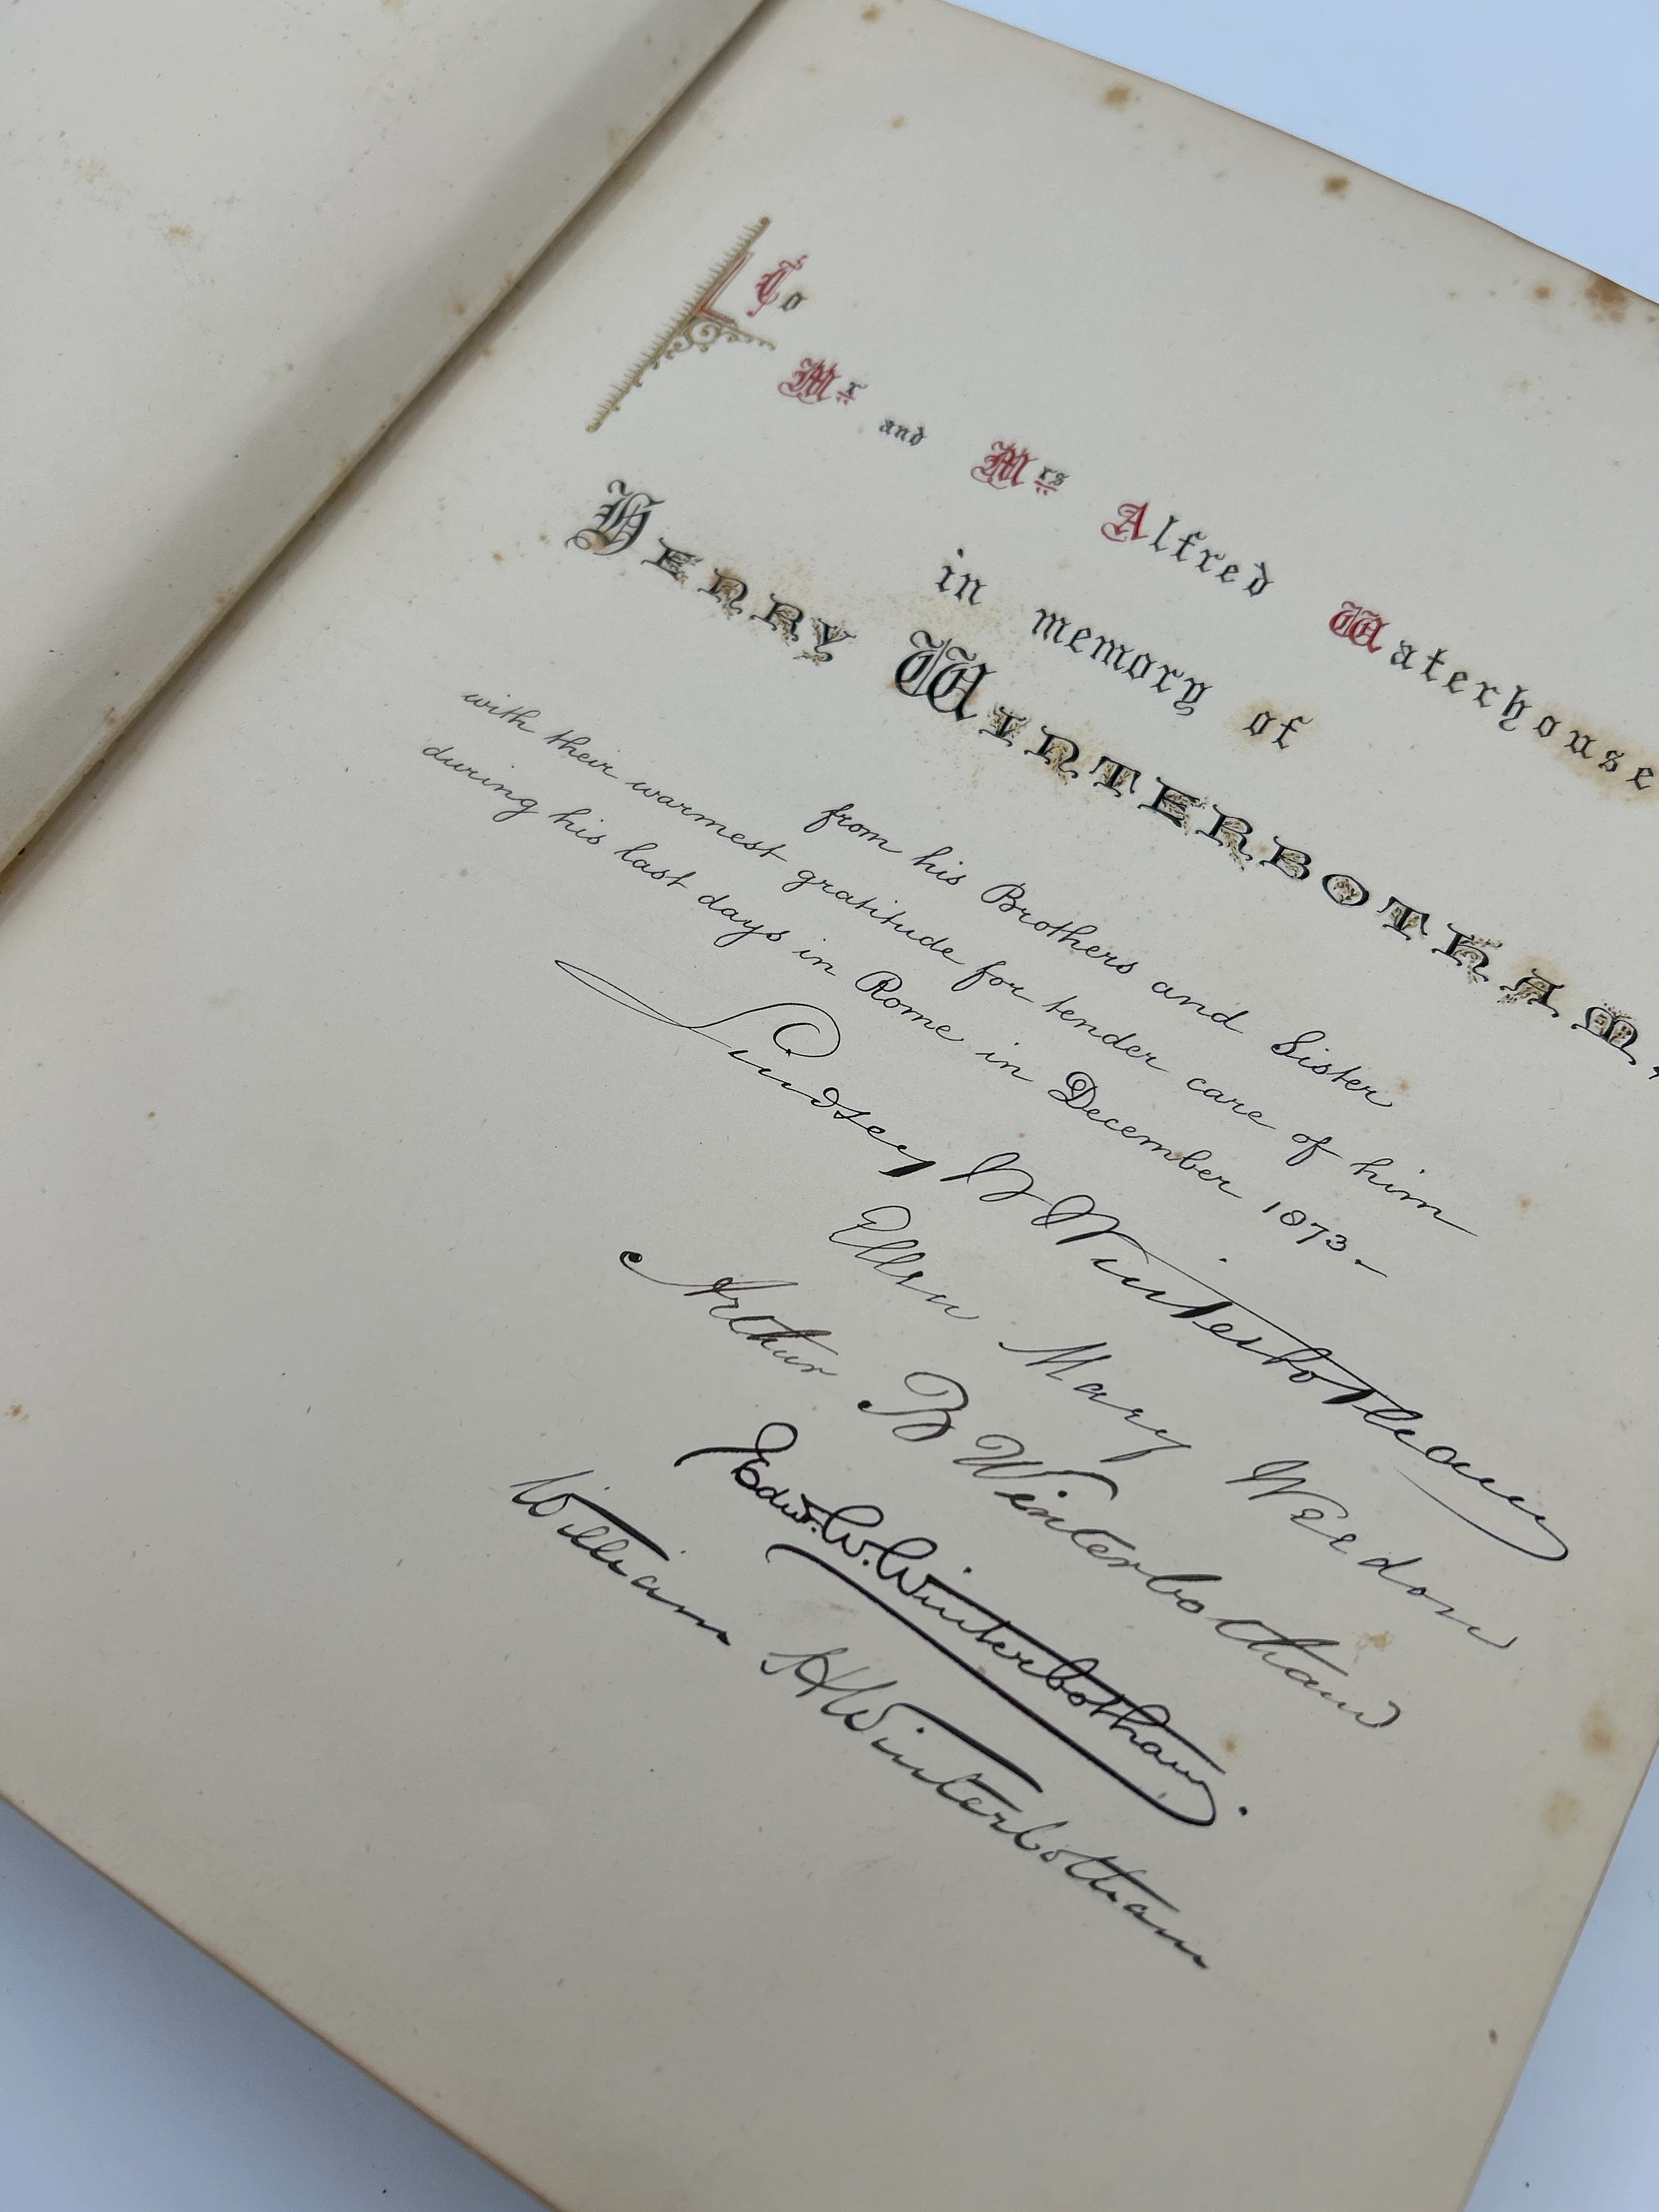 To
Mr and Mrs Alfred Waterhouse
in memory of
HENRY WINTERBOTHAM
from his Brothers and Sister
with their warmest gratitude for tender care of him
during his last days in Rome in December 1873.—
Lindsey W Winterbotham
Ellen Mary Weedon
Arthur B Winterbotham
Edw. W. Winterbotham.
William H Winterbotham